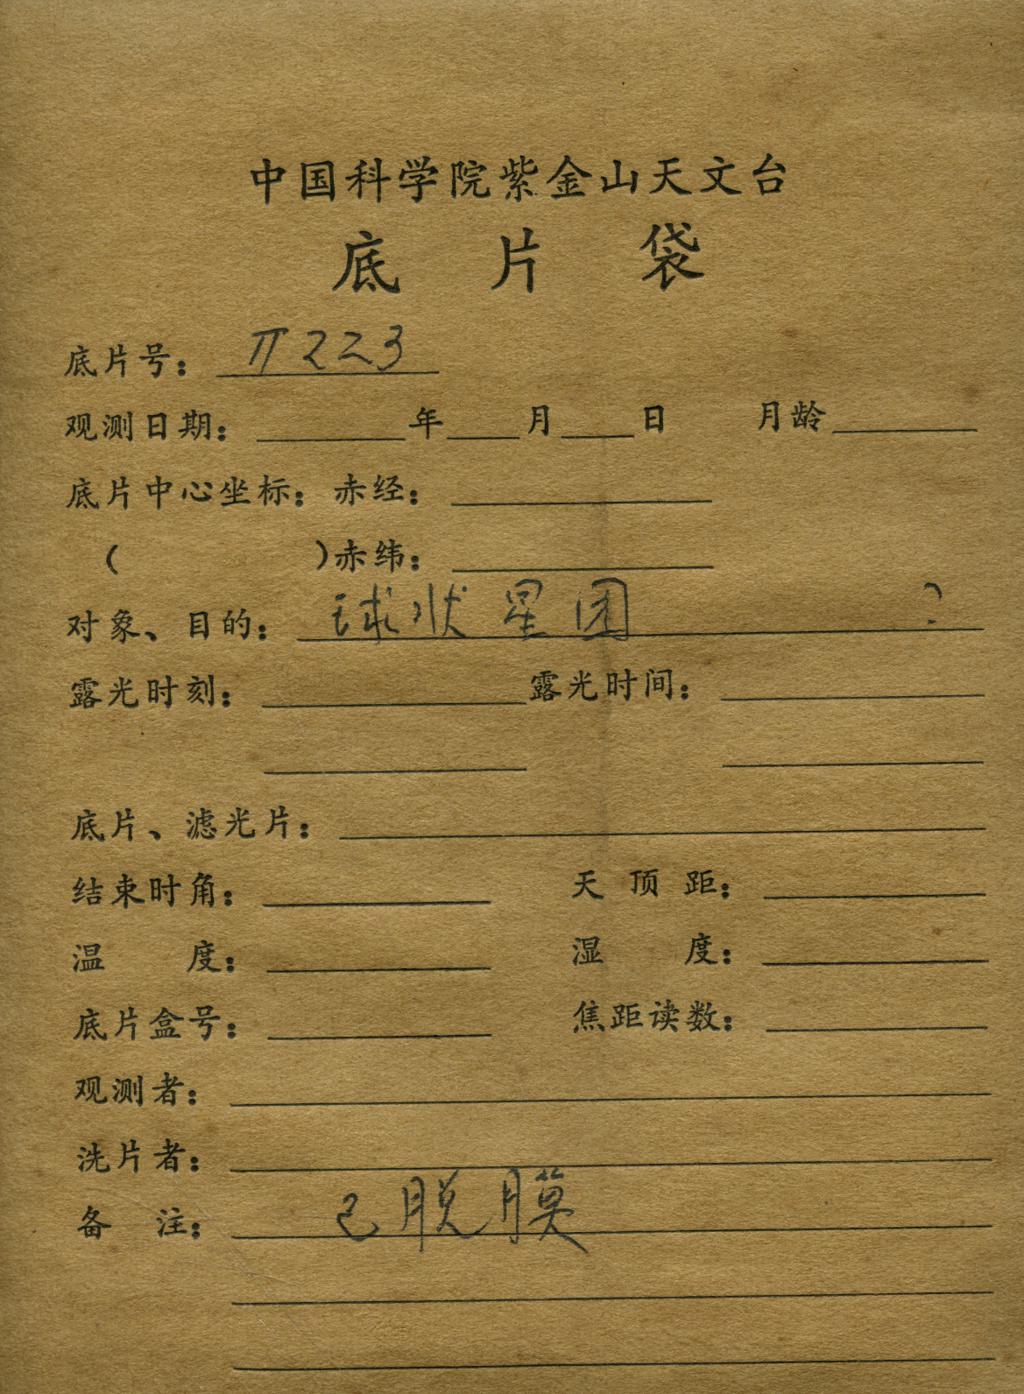 中国科学院紫金山天文台
底 片 袋
底片号：π223
观测日期：____年__月__日 月龄____
底片中心坐标：赤经：____
（ ）赤纬：____
对象、目的：球状星团 ？
露光时刻：____露光时间：____
底片、滤光片：____
结束时角：____ 天 顶 距：____
温 度：____ 湿 度：____
底片盒号：____ 焦距读数：____
观测者：____
洗片者：____
备 注：已脱膜